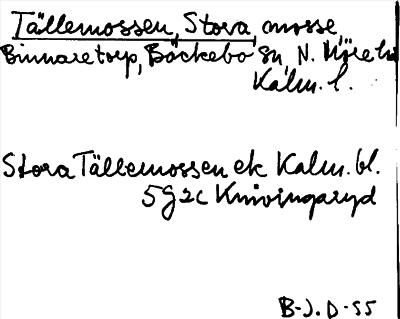 Tällemossen, Stora, mosse
Binnaretorp, Bäckebo sn, N. Möre hd
Kalm. l.
Stora Tällemossen ek Kalm. bl.
5g2c Knivingaryd
B-J. D-55